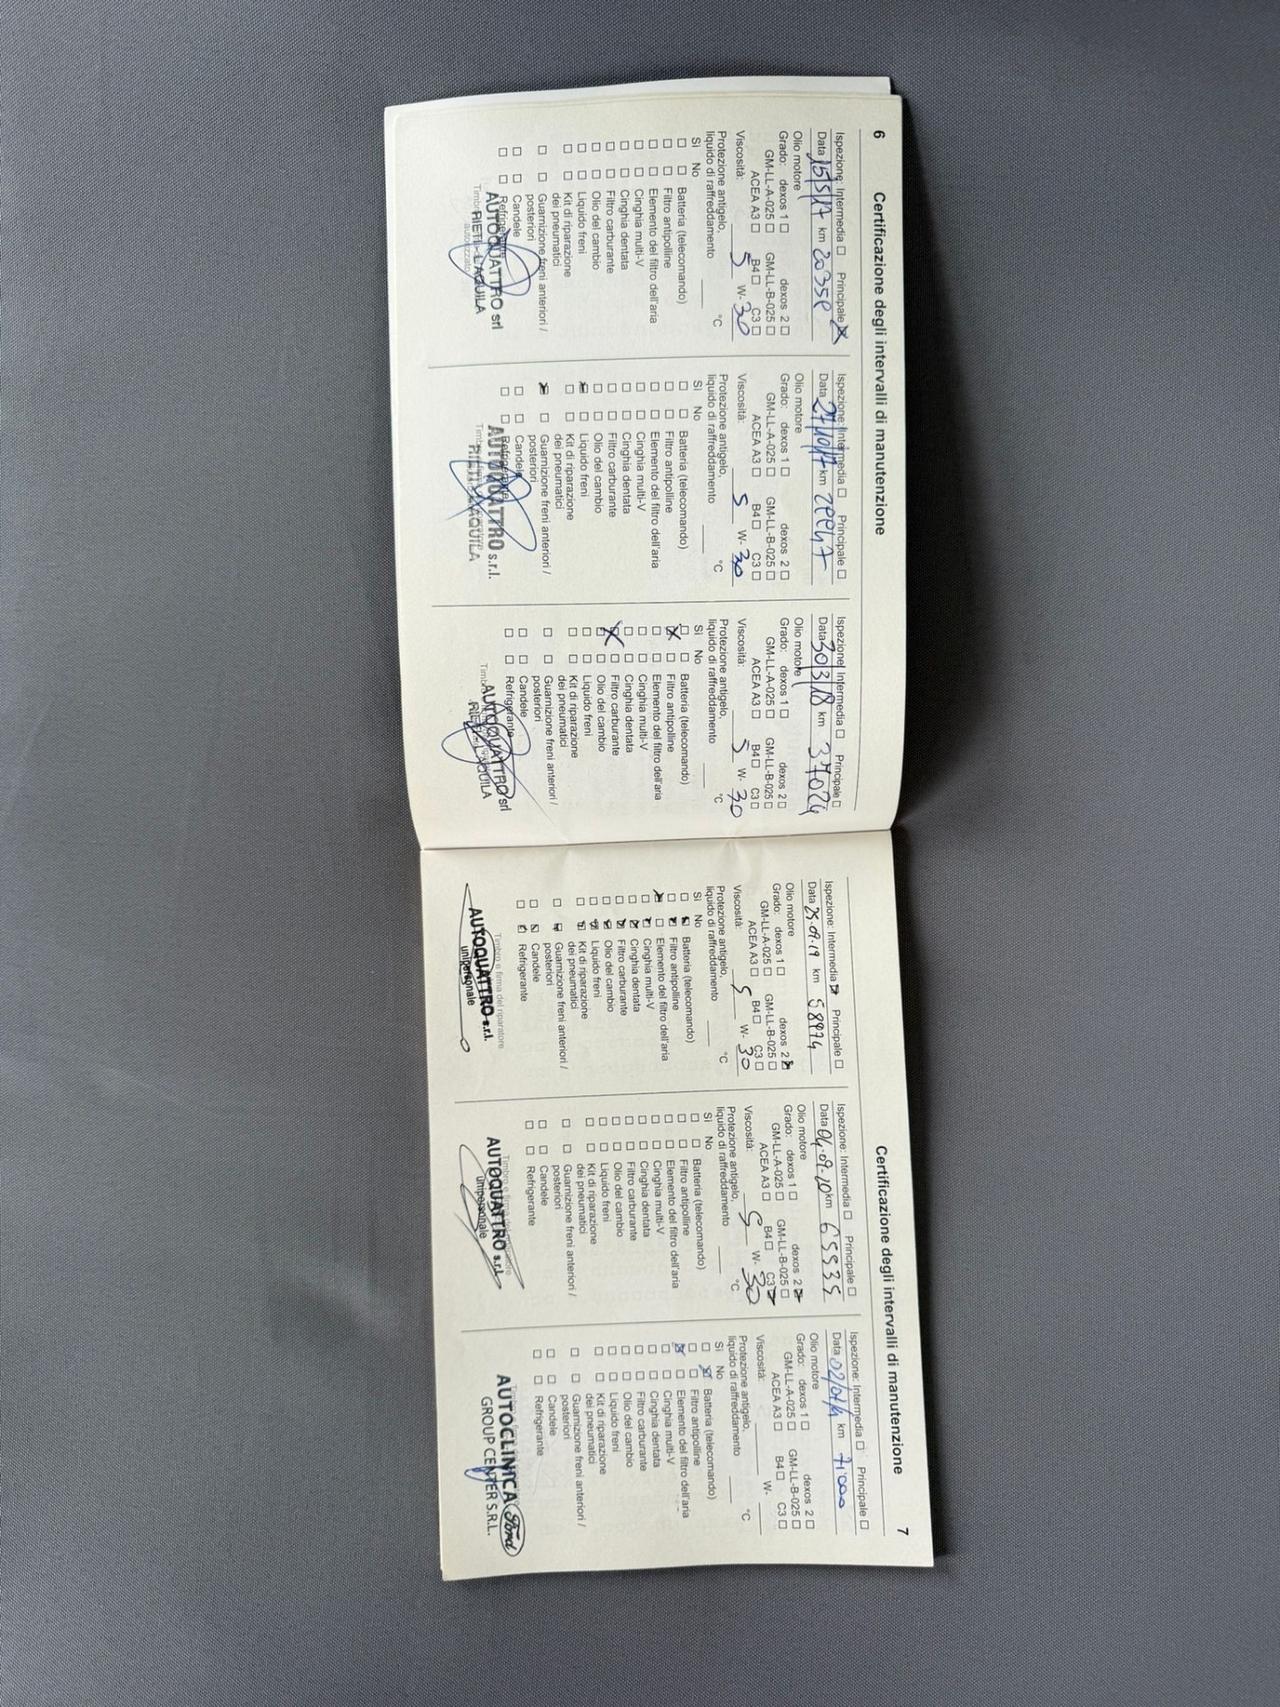 6 Certificazione degli intervalli di manutenzione
Ispezione: Intermedia ☐ Principale ☒
Data 15/5/17 km 20358
Olio motore
Grado: dexos 1 ☐ dexos 2 ☐
GM-LL-A-025 ☐ GM-LL-B-025 ☐
ACEA A3 ☐ B4 ☐ C3 ☐
Viscosità: 5 W- 30
Protezione antigelo,
liquido di raffreddamento °C
Sì No
☐ ☐ Batteria (telecomando)
☐ ☐ Filtro antipolline
☐ ☐ Elemento del filtro dell'aria
☐ ☐ Cinghia multi-V
☐ ☐ Cinghia dentata
☐ ☐ Filtro carburante
☐ ☐ Olio del cambio
☐ ☐ Liquido freni
☐ ☐ Kit di riparazione
dei pneumatici
☐ ☐ Guarnizione freni anteriori /
posteriori
☐ ☐ Candele
☐ ☐ Refrigerante
AUTOQUATTRO srl
RIETI - L'AQUILA
Ispezione: Intermedia ☐ Principale ☐
Data 27/10/17 km
Olio motore
Grado: dexos 1 ☐ dexos 2 ☐
GM-LL-A-025 ☐ GM-LL-B-025 ☐
ACEA A3 ☐ B4 ☐ C3 ☐
Viscosità: 5 W- 30
Protezione antigelo,
liquido di raffreddamento °C
Sì No
☐ ☐ Batteria (telecomando)
☐ ☐ Filtro antipolline
☐ ☐ Elemento del filtro dell'aria
☐ ☐ Cinghia multi-V
☐ ☐ Cinghia dentata
☐ ☐ Filtro carburante
☐ ☐ Olio del cambio
☒ ☐ Liquido freni
☐ ☐ Kit di riparazione
dei pneumatici
☒ ☐ Guarnizione freni anteriori /
posteriori
☐ ☐ Candele
☐ ☐ Refrigerante
AUTOQUATTRO s.r.l.
RIETI - L'AQUILA
Ispezione: Intermedia ☐ Principale ☐
Data 30/3/18 km 37024
Olio motore
Grado: dexos 1 ☐ dexos 2 ☐
GM-LL-A-025 ☐ GM-LL-B-025 ☐
ACEA A3 ☐ B4 ☐ C3 ☐
Viscosità: 5 W- 30
Protezione antigelo,
liquido di raffreddamento °C
Sì No
☐ ☐ Batteria (telecomando)
☒ ☐ Filtro antipolline
☐ ☐ Elemento del filtro dell'aria
☐ ☐ Cinghia multi-V
☐ ☐ Cinghia dentata
☒ ☐ Filtro carburante
☐ ☐ Olio del cambio
☐ ☐ Liquido freni
☐ ☐ Kit di riparazione
dei pneumatici
☐ ☐ Guarnizione freni anteriori /
posteriori
☐ ☐ Candele
☐ ☐ Refrigerante
AUTOQUATTRO srl
RIETI - L'AQUILA
Certificazione degli intervalli di manutenzione 7
Ispezione: Intermedia ☒ Principale ☐
Data 25.09.19 km 58974
Olio motore
Grado: dexos 1 ☐ dexos 2 ☒
GM-LL-A-025 ☐ GM-LL-B-025 ☐
ACEA A3 ☐ B4 ☐ C3 ☐
Viscosità: 5 W- 30
Protezione antigelo,
liquido di raffreddamento °C
Sì No
☐ ☒ Batteria (telecomando)
☐ ☒ Filtro antipolline
☒ ☐ Elemento del filtro dell'aria
☐ ☒ Cinghia multi-V
☐ ☒ Cinghia dentata
☐ ☒ Filtro carburante
☐ ☒ Olio del cambio
☐ ☒ Liquido freni
☐ ☒ Kit di riparazione
dei pneumatici
☐ ☒ Guarnizione freni anteriori /
posteriori
☐ ☒ Candele
☐ ☒ Refrigerante
Timbro e firma del riparatore
AUTOQUATTRO s.r.l.
unipersonale
Ispezione: Intermedia ☐ Principale ☐
Data 04.09.20 km 65535
Olio motore
Grado: dexos 1 ☐ dexos 2 ☒
GM-LL-A-025 ☐ GM-LL-B-025 ☐
ACEA A3 ☐ B4 ☐ C3 ☒
Viscosità: 5 W- 30
Protezione antigelo,
liquido di raffreddamento °C
Sì No
☐ ☐ Batteria (telecomando)
☐ ☐ Filtro antipolline
☐ ☐ Elemento del filtro dell'aria
☐ ☐ Cinghia multi-V
☐ ☐ Cinghia dentata
☐ ☐ Filtro carburante
☐ ☐ Olio del cambio
☐ ☐ Liquido freni
☐ ☐ Kit di riparazione
dei pneumatici
☐ ☐ Guarnizione freni anteriori /
posteriori
☐ ☐ Candele
☐ ☐ Refrigerante
AUTOQUATTRO s.r.l.
unipersonale
Ispezione: Intermedia ☐ Principale ☐
Data km 71.000
Olio motore
Grado: dexos 1 ☐ dexos 2 ☐
GM-LL-A-025 ☐ GM-LL-B-025 ☐
ACEA A3 ☐ B4 ☐ C3 ☐
Viscosità: W-
Protezione antigelo,
liquido di raffreddamento °C
Sì No
☐ ☒ Batteria (telecomando)
☐ ☐ Filtro antipolline
☒ ☐ Elemento del filtro dell'aria
☐ ☐ Cinghia multi-V
☐ ☐ Cinghia dentata
☐ ☐ Filtro carburante
☐ ☐ Olio del cambio
☐ ☐ Liquido freni
☐ ☐ Kit di riparazione
dei pneumatici
☐ ☐ Guarnizione freni anteriori /
posteriori
☐ ☐ Candele
☐ ☐ Refrigerante
AUTOCLINICA Ford
GROUP CENTER S.R.L.